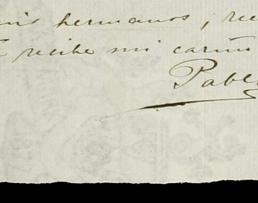 mis hermanos, rec
recibe mi cariñ
Pabl